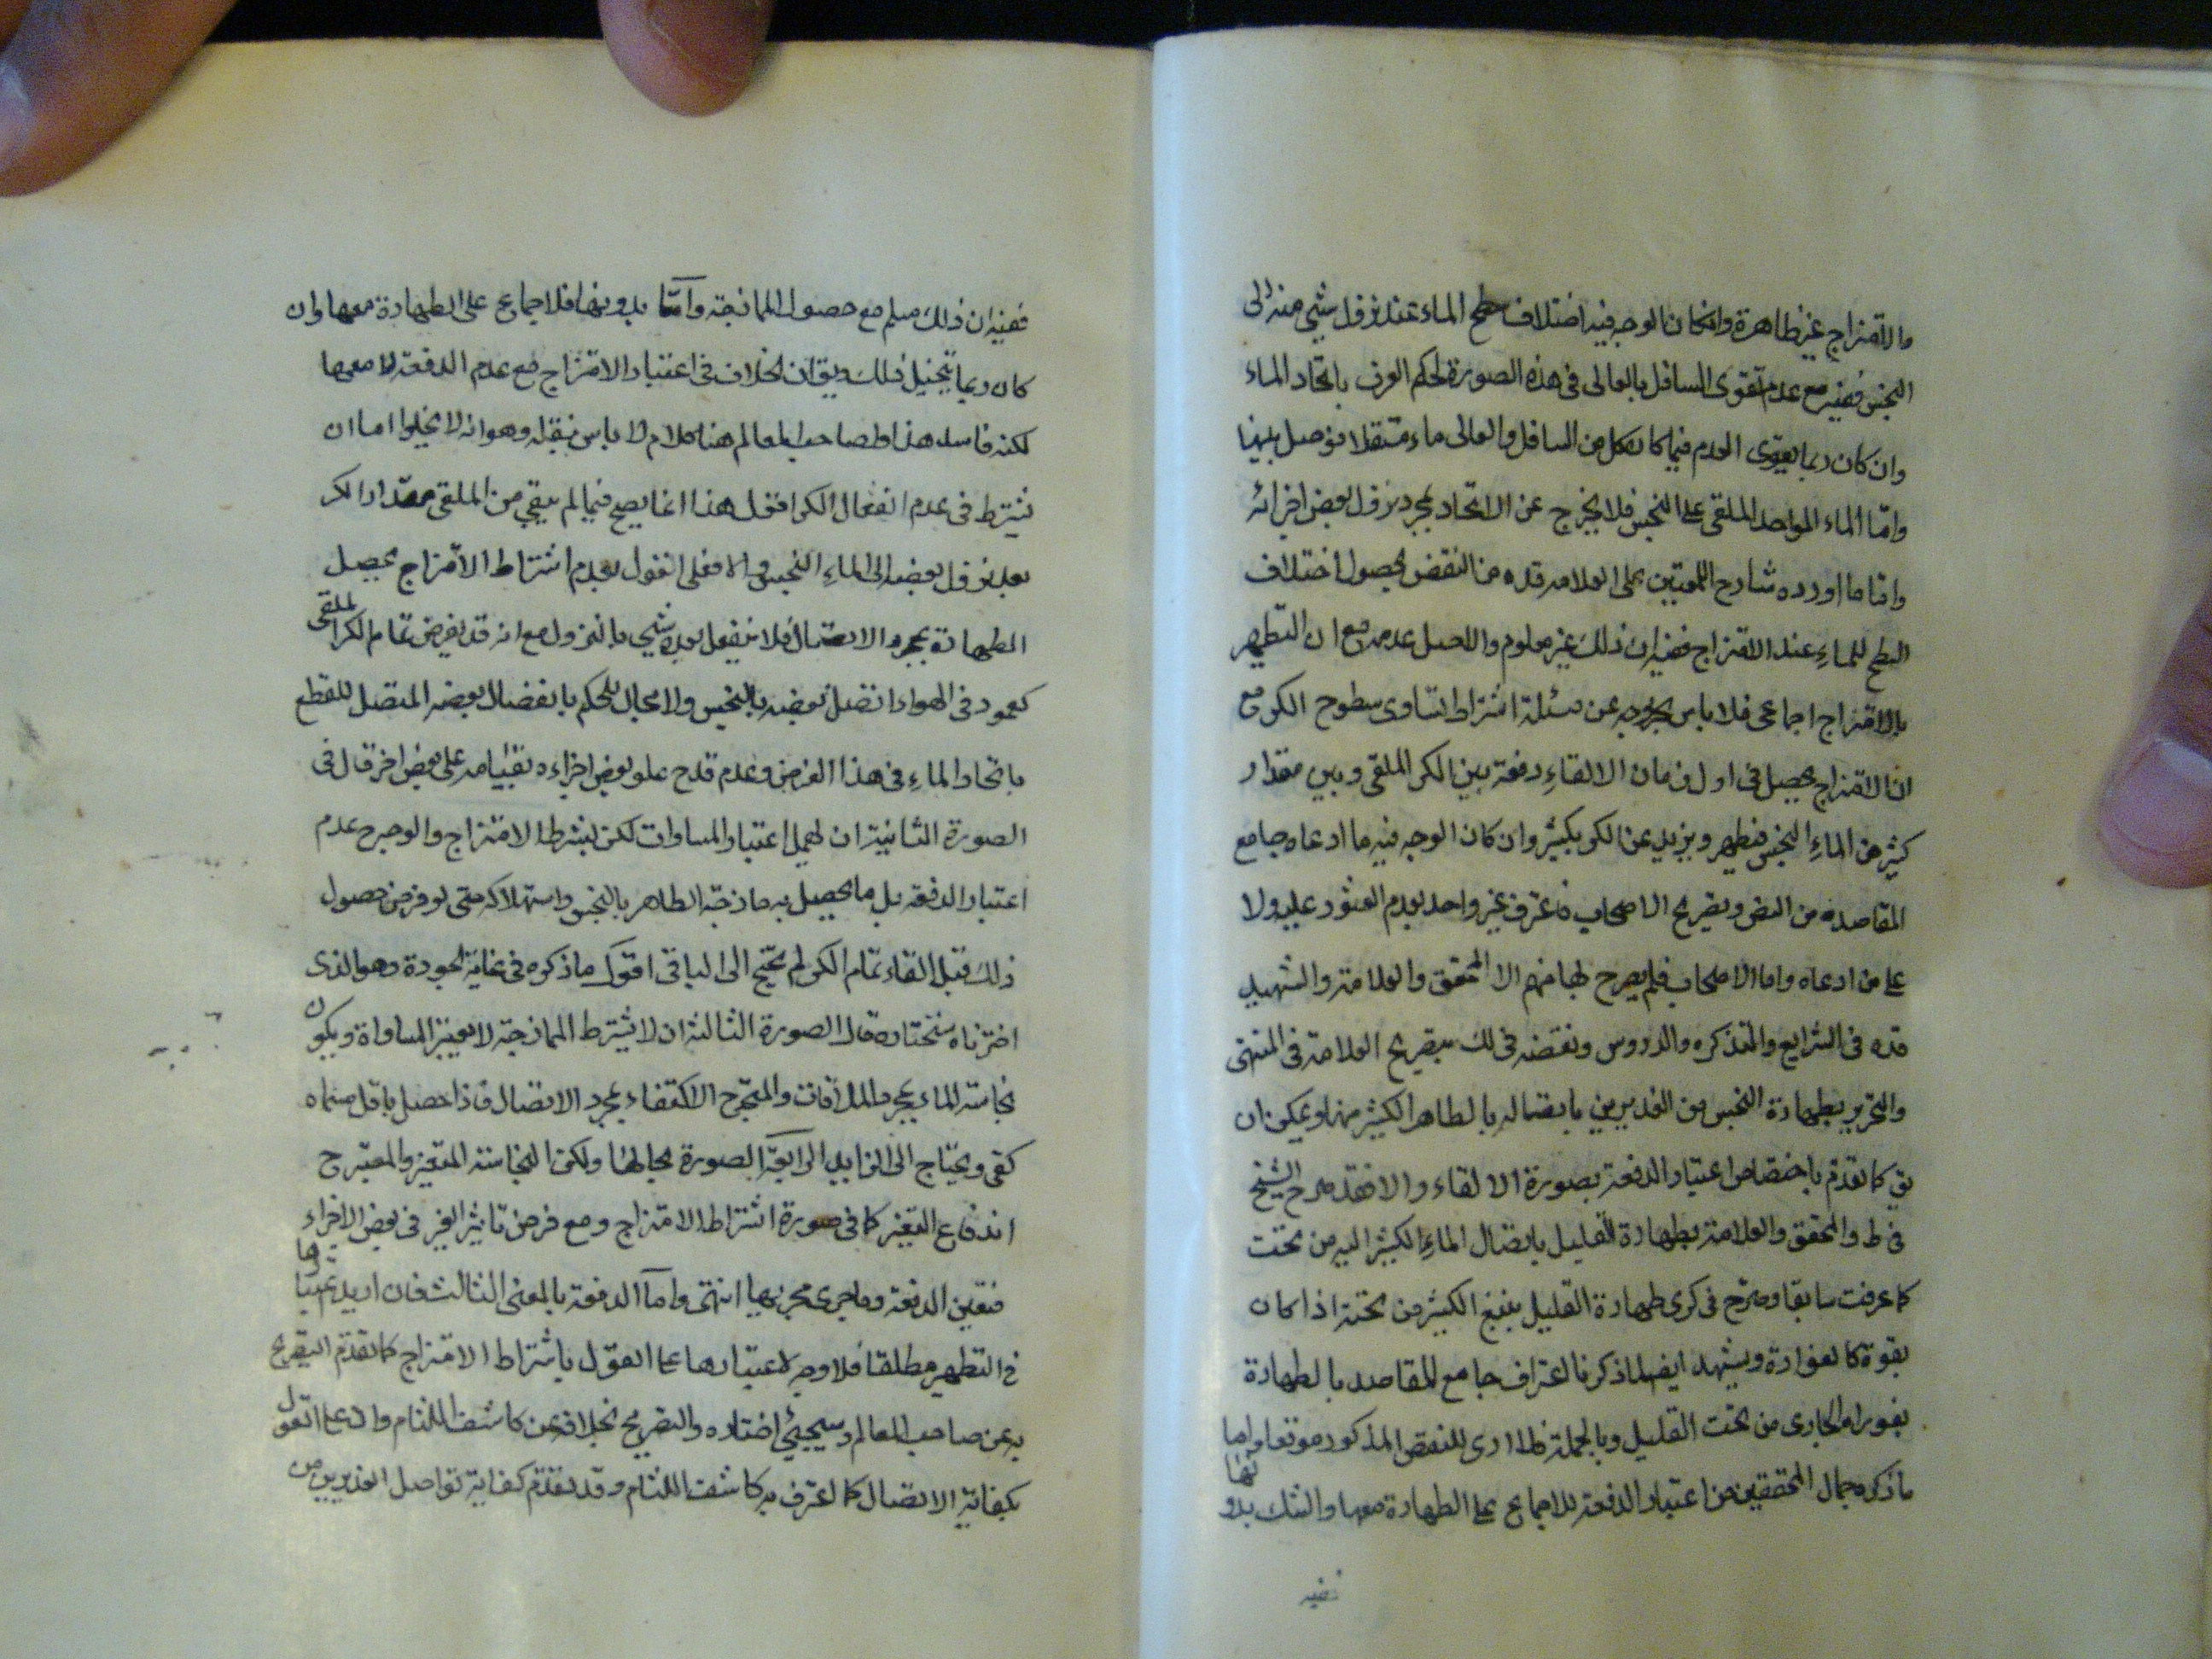 ما الامتزاج غير ظاهرة وان كان الوجه فيه اختلاف سطح الماء عند نزول شئ منه الى
النجس ففيه مع عدم تقوى السافل بالعالى فى هذه الصورة لحكم العرف باتحاد الماء
وان كان ربما يقوى العدم فيما كان كل من السافل والعالى ماء مستقلا فوصل بينهما
وامّا الماء الواحد الملقى على النجس فلا يخرج عن الاتحاد بمجرد نزول بعض اجزائه
وامّا ما اورده شارح اللمعتين على العلامه قده من النقض بحصول اختلاف
السطح للماء عند الامتزاج ففيه ان ذلك غير معلوم والاصل عدمه مع ان التطهير
بالامتزاج اجماعى فلا باس بخروجه عن مسئلة اشتراط تساوى سطوح الكر مع
ان الامتزاج يحصل فى اول زمان الالقاء دفعة بين الكر الملقى وبين مقدار
كثير من الماء النجس فيطهر ويزيد عن الكر بكثير وان كان الوجه فيه ما ادعاه جامع
المقاصد من النص وتصريح الاصحاب فاعترف غير واحد بعدم العثور عليه ولا
على من ادعاه واما الاصحاب فلم يصرح بها منهم الا المحقق والعلامة والشهيد
قده فى الشرايع والتذكره والدروس ونقضه فى ذلك بتصريح العلامة فى المنتهى
والتحرير بطهارة النجس من الغديرين باتصاله بالطاهر الكثير منهما ويمكن ان
يق كما تقدم باختصاص اعتبار الدفعة بصورة الالقاء والا فقد صرح الشيخ
فى ط والمحقق والعلامة بطهارة القليل باتصال الماء الكثير اليه من تحت
كما عرفت سابقا وصرّح فى كرى طهارة القليل بنبع الكثير من تحته اذا كان
بقوة كالفوارة ويشهد ايضا لما ذكرنا اعتراف جامع المقاصد بالطهارة
بفوران الجارى من تحت القليل وبالجملة فلا ارى للنقض المذكور موقعا واما
ماذكره جمال المحققين من اعتبار الدفعة للاجماع على الطهارة معها والشك بدونها
ففيه
ففيه ان ذلك مسلم مع حصول الممازجة وامّا بدونها فلا اجماع على الطهارة معها وان
كان ربما يتخيل ذلك ويق ان الخلاف فى اعتبار الامتزاج مع عدم الدفعة لا معها
لكنه فاسد هذا ولصاحب المعالم هنا كلام لا باس بنقله وهو انه لا يخلوا اما ان
نشترط فى عدم انفعال الكر اقول هذا انما يصح فيما لم يبقى من الملقى مقدار الكر
بعد نزول بعضه الى الماء النجس والا فعلى القول بعدم اشتراط الامتزاج يحصل
الطهارة بمجرد الاتصال فلا ينفعل بعده شئ بالنزول مع انه قد يفرض تمام الكر الملقى
كعمود فى الهواء اتصل بعضه بالنجس ولا مجال للحكم بانفصال بعضه المتصل للقطع
باتحاد الماء فى هذا الفرض وعدم قدح علو بعض اجزاءه بقيامه على بعض اخر قال فى
الصورة الثانية ان لهمل اعتبار المساوات لكن يشترط الامتزاج والوجه ح عدم
اعتبار الدفعه بل ما يحصل به ممازجة الطاهر بالنجس واستهلاكه حتى لو فرض حصول
ذلك قبل القاء تمام الكر لم يحتج الى الباقى اقول ماذكره فى غاية الجودة وهو الذى
اخترناه سنختاره قال الصورة الثالثة ان لا يشترط الممازجة لا يعتبر المساواة ويكون
نجاسة الماء بمجرد الملاقات والمتجه ح الاكتفاء بمجرد الاتصال فاذا حصل باقل مسماه
كفى ويحتاج الى الزايد الرابعة الصورة بحالها ولكن النجاسة التغير والمعتبر ح
اندفاع التغير كما فى صورة اشتراط الامتزاج ومع فرض تاثير التغير فى بعض الاجزاء
فتعين الدفعة وماجرى مجريها انتهى وامّا الدفعة بالمعنى الثالث فان اريد اعتبارها
فى التطهير مطلقا فلا وجه لاعتبارها على القول باشتراط الامتزاج كما تقدّم التصريح
به عن صاحب المعالم وسيجئ اختاره والتصريح بخلافه عن كاشف اللثام وان على القول
بكفاية الاتصال كما اعترف به كاشف اللثام وقد تقدّم كفاية تواصل الغديرين من